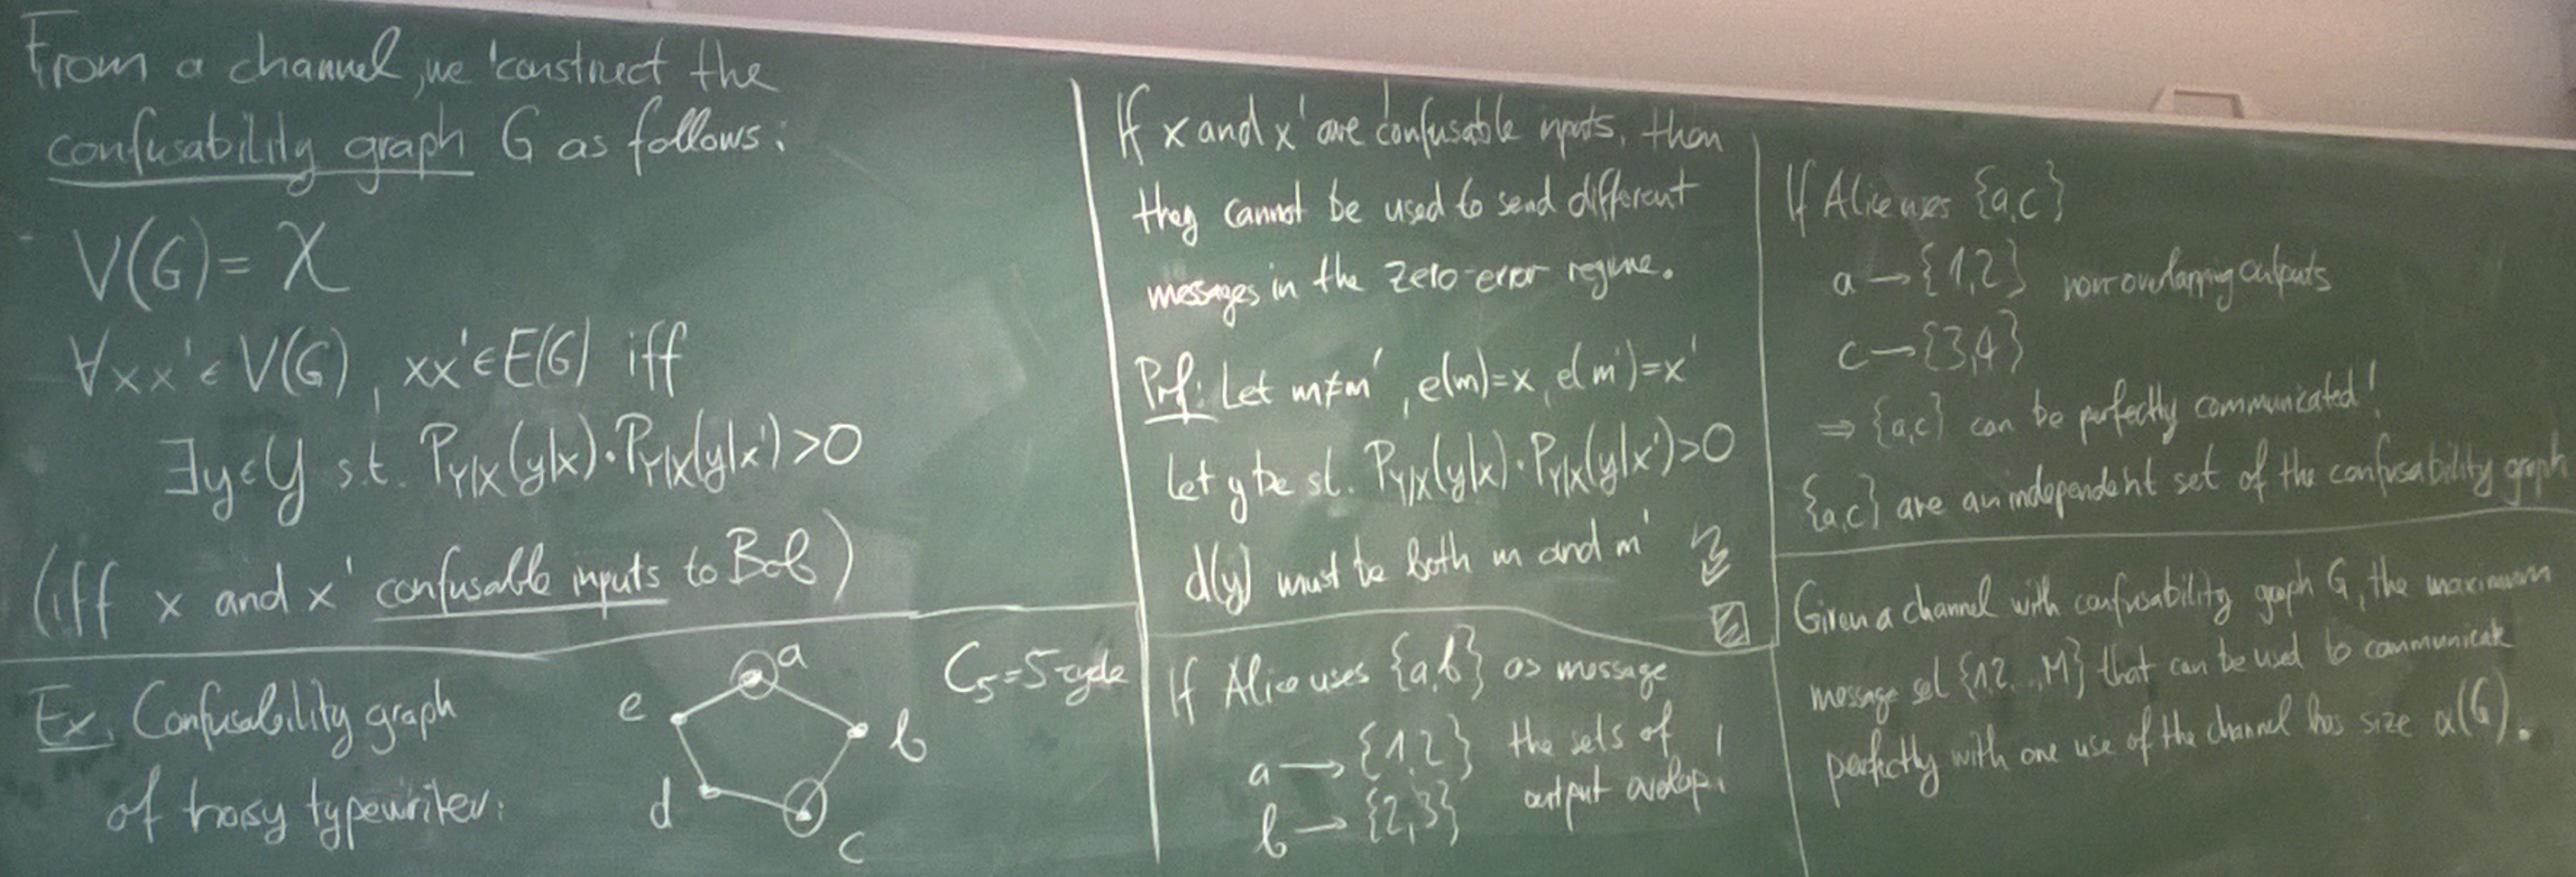 From a channel, we construct the
confusability graph G as follows:
V(G) = X
∀xx'∈V(G), xx'∈E(G) iff
∃y∈Y s.t. P_{Y|X}(y|x)·P_{Y|X}(y|x')>0
(iff x and x' confusable inputs to Bob)
Ex. Confusability graph
of noisy typewriter:
a
e
b
d
c
C₅=5-cycle
If x and x' are confusable inputs, then
they cannot be used to send different
messages in the zero-error regime.
Prf: Let m≠m', e(m)=x, e(m')=x'
Let y be st. P_{Y|X}(y|x)·P_{Y|X}(y|x')>0
d(y) must be both m and m'
If Alice uses {a,b} as message
a → {1,2} the sets of
b → {2,3} output overlap!
If Alice uses {a,c}
a → {1,2} non-overlapping outputs
c → {3,4}
⇒ {a,c} can be perfectly communicated!
{a,c} are an independent set of the confusability graph
Given a channel with confusability graph G, the maximum
message set {1,2,..,M} that can be used to communicate
perfectly with one use of the channel has size α(G).